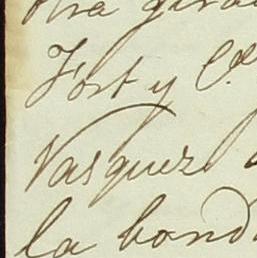 otra gira
Fort y Cª
Vasquez
la bond